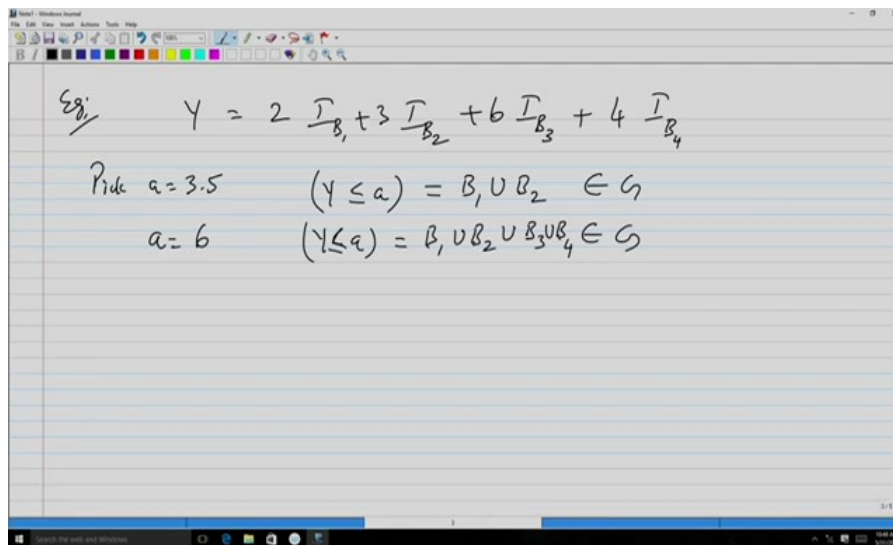 Note1 - Windows Journal
File Edit View Insert Actions Tools Help
Eg:
Y = 2 I_B₁ + 3 I_B₂ + 6 I_B₃ + 4 I_B₄
Pick a = 3.5 (Y ≤ a) = B₁ ∪ B₂ ∈ G
a = 6 (Y ≤ a) = B₁ ∪ B₂ ∪ B₃ ∪ B₄ ∈ G
3
Search the web and Windows